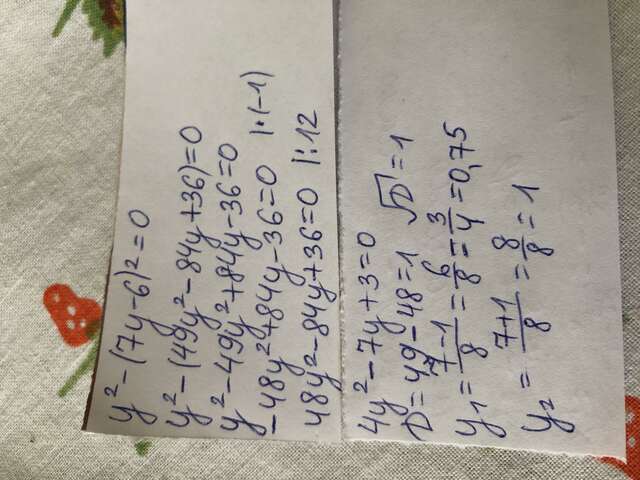 y² - (7y - 6)² = 0
y² - (49y² - 84y + 36) = 0
y² - 49y² + 84y - 36 = 0
- 48y² + 84y - 36 = 0 | · (-1)
48y² - 84y + 36 = 0 | : 12
4y² - 7y + 3 = 0
D = 49 - 48 = 1 √D = 1
y₁ = (7 - 1)/8 = 6/8 = 3/4 = 0,75
y₂ = (7 + 1)/8 = 8/8 = 1